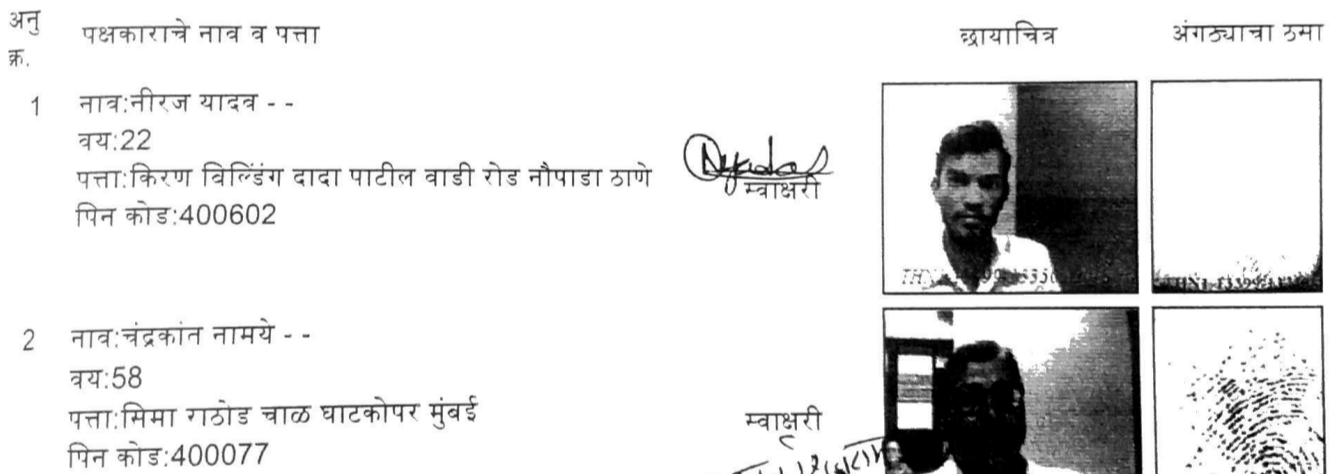 अनु क्र. पक्षकाराचे नाव व पत्ता छायाचित्र अंगठ्याचा ठसा
1 नाव:नीरज यादव - -
वय:22
पत्ता:किरण बिल्डिंग दादा पाटील वाडी रोड नौपाडा ठाणे
पिन कोड:400602
स्वाक्षरी
2 नाव:चंद्रकांत नामये - -
वय:58
पत्ता:सिमा राठोड चाळ घाटकोपर मुंबई
पिन कोड:400077
स्वाक्षरी